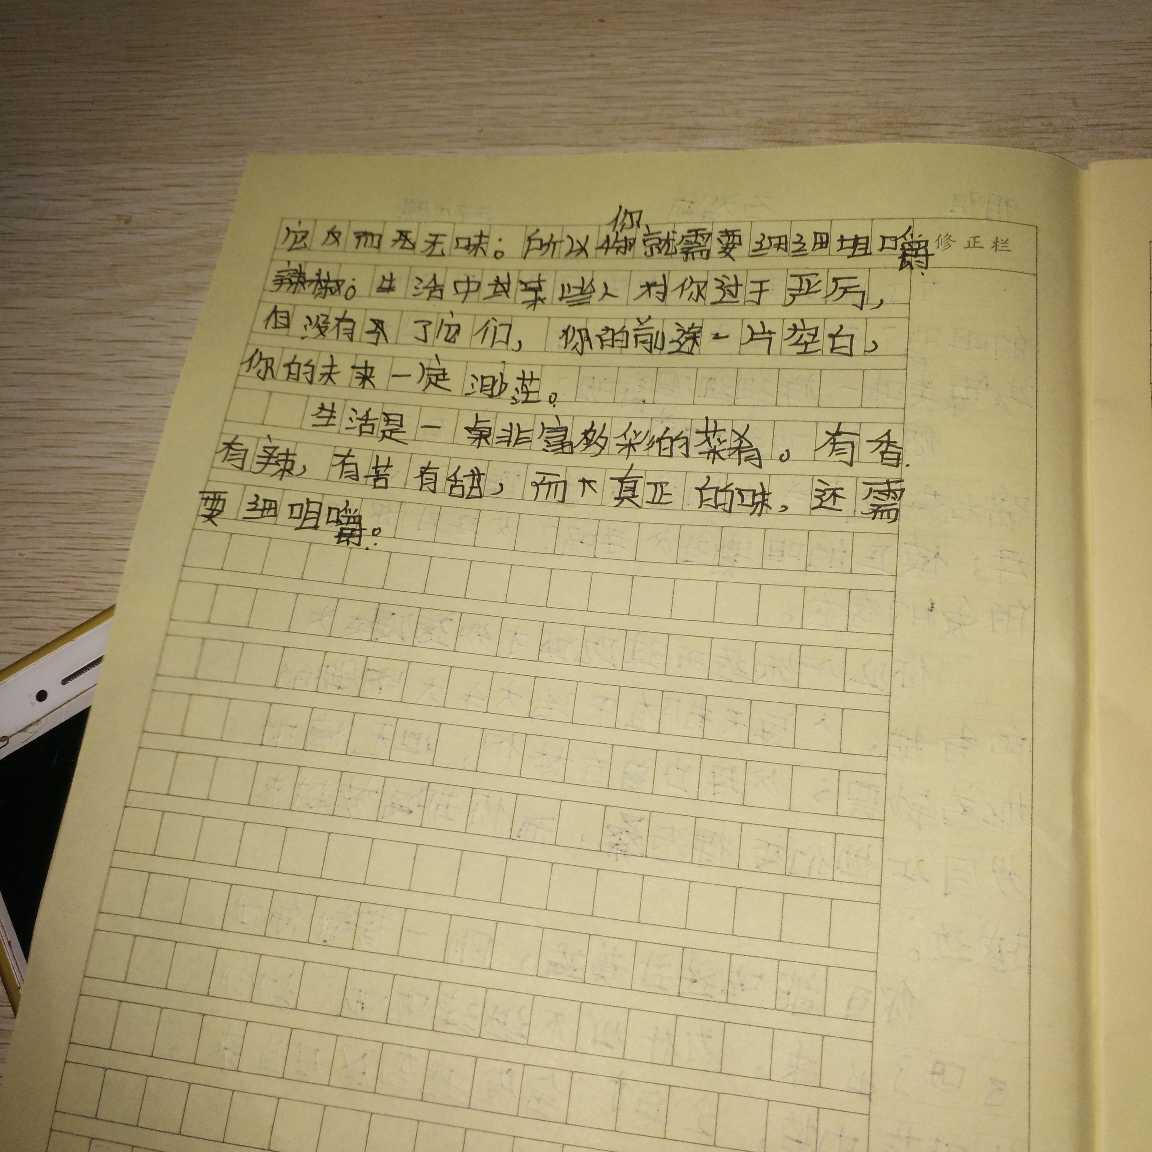 你
它反而无味。所以你就需要细细咀嚼 修正栏
辣椒。生活中某些人对你过于严厉，
但没有了它们，你的前途一片空白，
你的未来一定渺茫。
生活是一桌丰富多彩的菜肴。有香
有辣，有苦有甜，而真正的味，还需
要细咀嚼。